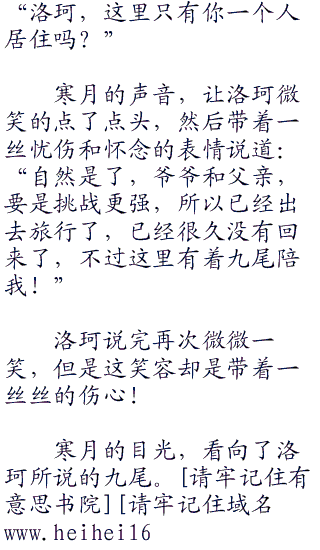 “洛珂，这里只有你一个人
居住吗？”
寒月的声音，让洛珂微
笑的点了点头，然后带着一
丝忧伤和怀念的表情说道：
“自然是了，爷爷和父亲，
要是挑战更强，所以已经出
去旅行了，已经很久没有回
来了，不过这里有着九尾陪
我！”
洛珂说完再次微微一
笑，但是这笑容却是带着一
丝丝的伤心！
寒月的目光，看向了洛
珂所说的九尾。[请牢记住有
意思书院][请牢记住域名
www.heihei16